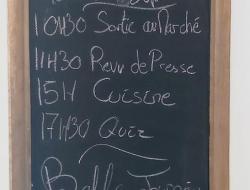 10H30 Sortie au Marché
11H30 Revu de Presse
15H Cuisine
17H30 Quiz
Belle